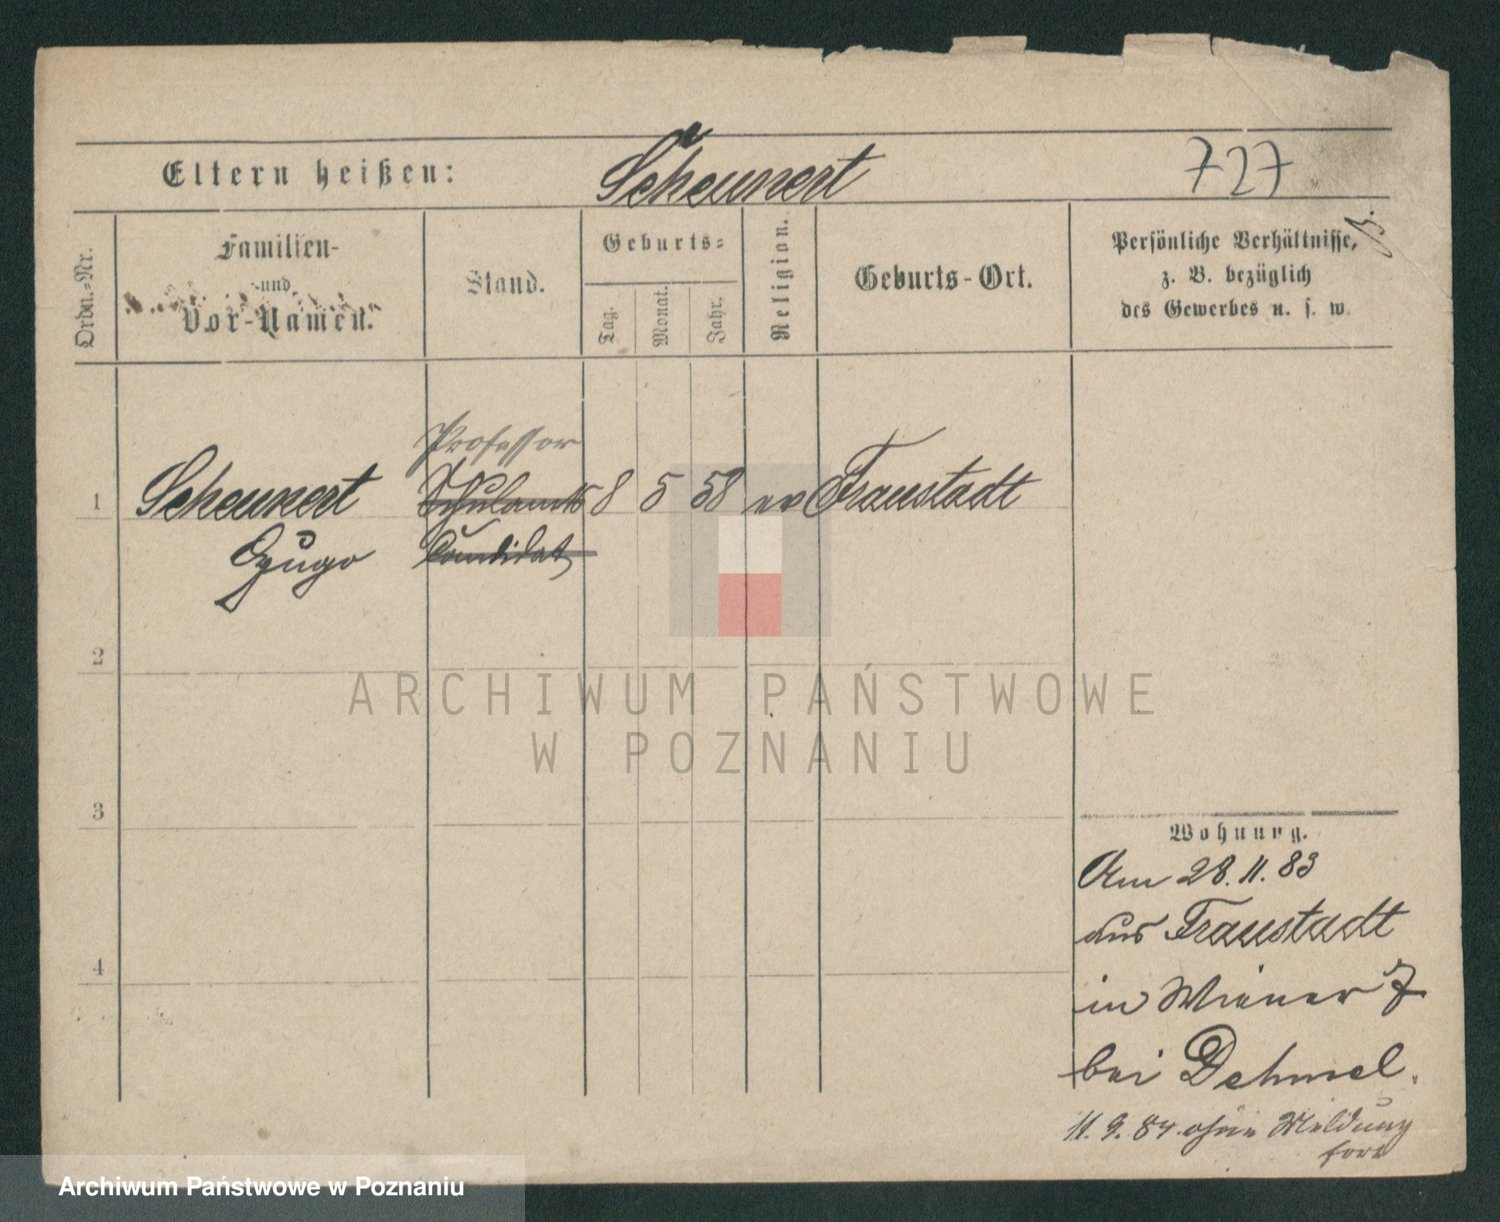 Eltern heißen: Scheunert 727
B.
Ordn.-Nr.
Familien-
und
Vor-Namen.
Stand.
Geburts-
Tag.
Monat.
Jahr.
Religion.
Geburts-Ort.
Persönliche Verhältnisse,
z. B. bezüglich
des Gewerbes u. s. w.
Professor
1 Scheunert Schulamts 8 5 58 ev Fraustadt
Hugo Candidat
2
3
4
Wohnung.
Am 28.11.83
aus Fraustadt
in Wiener 7
bei Dehmel.
11.9.84 ohne Meldung
fort
ARCHIWUM PAŃSTWOWE
W POZNANIU
Archiwum Państwowe w Poznaniu